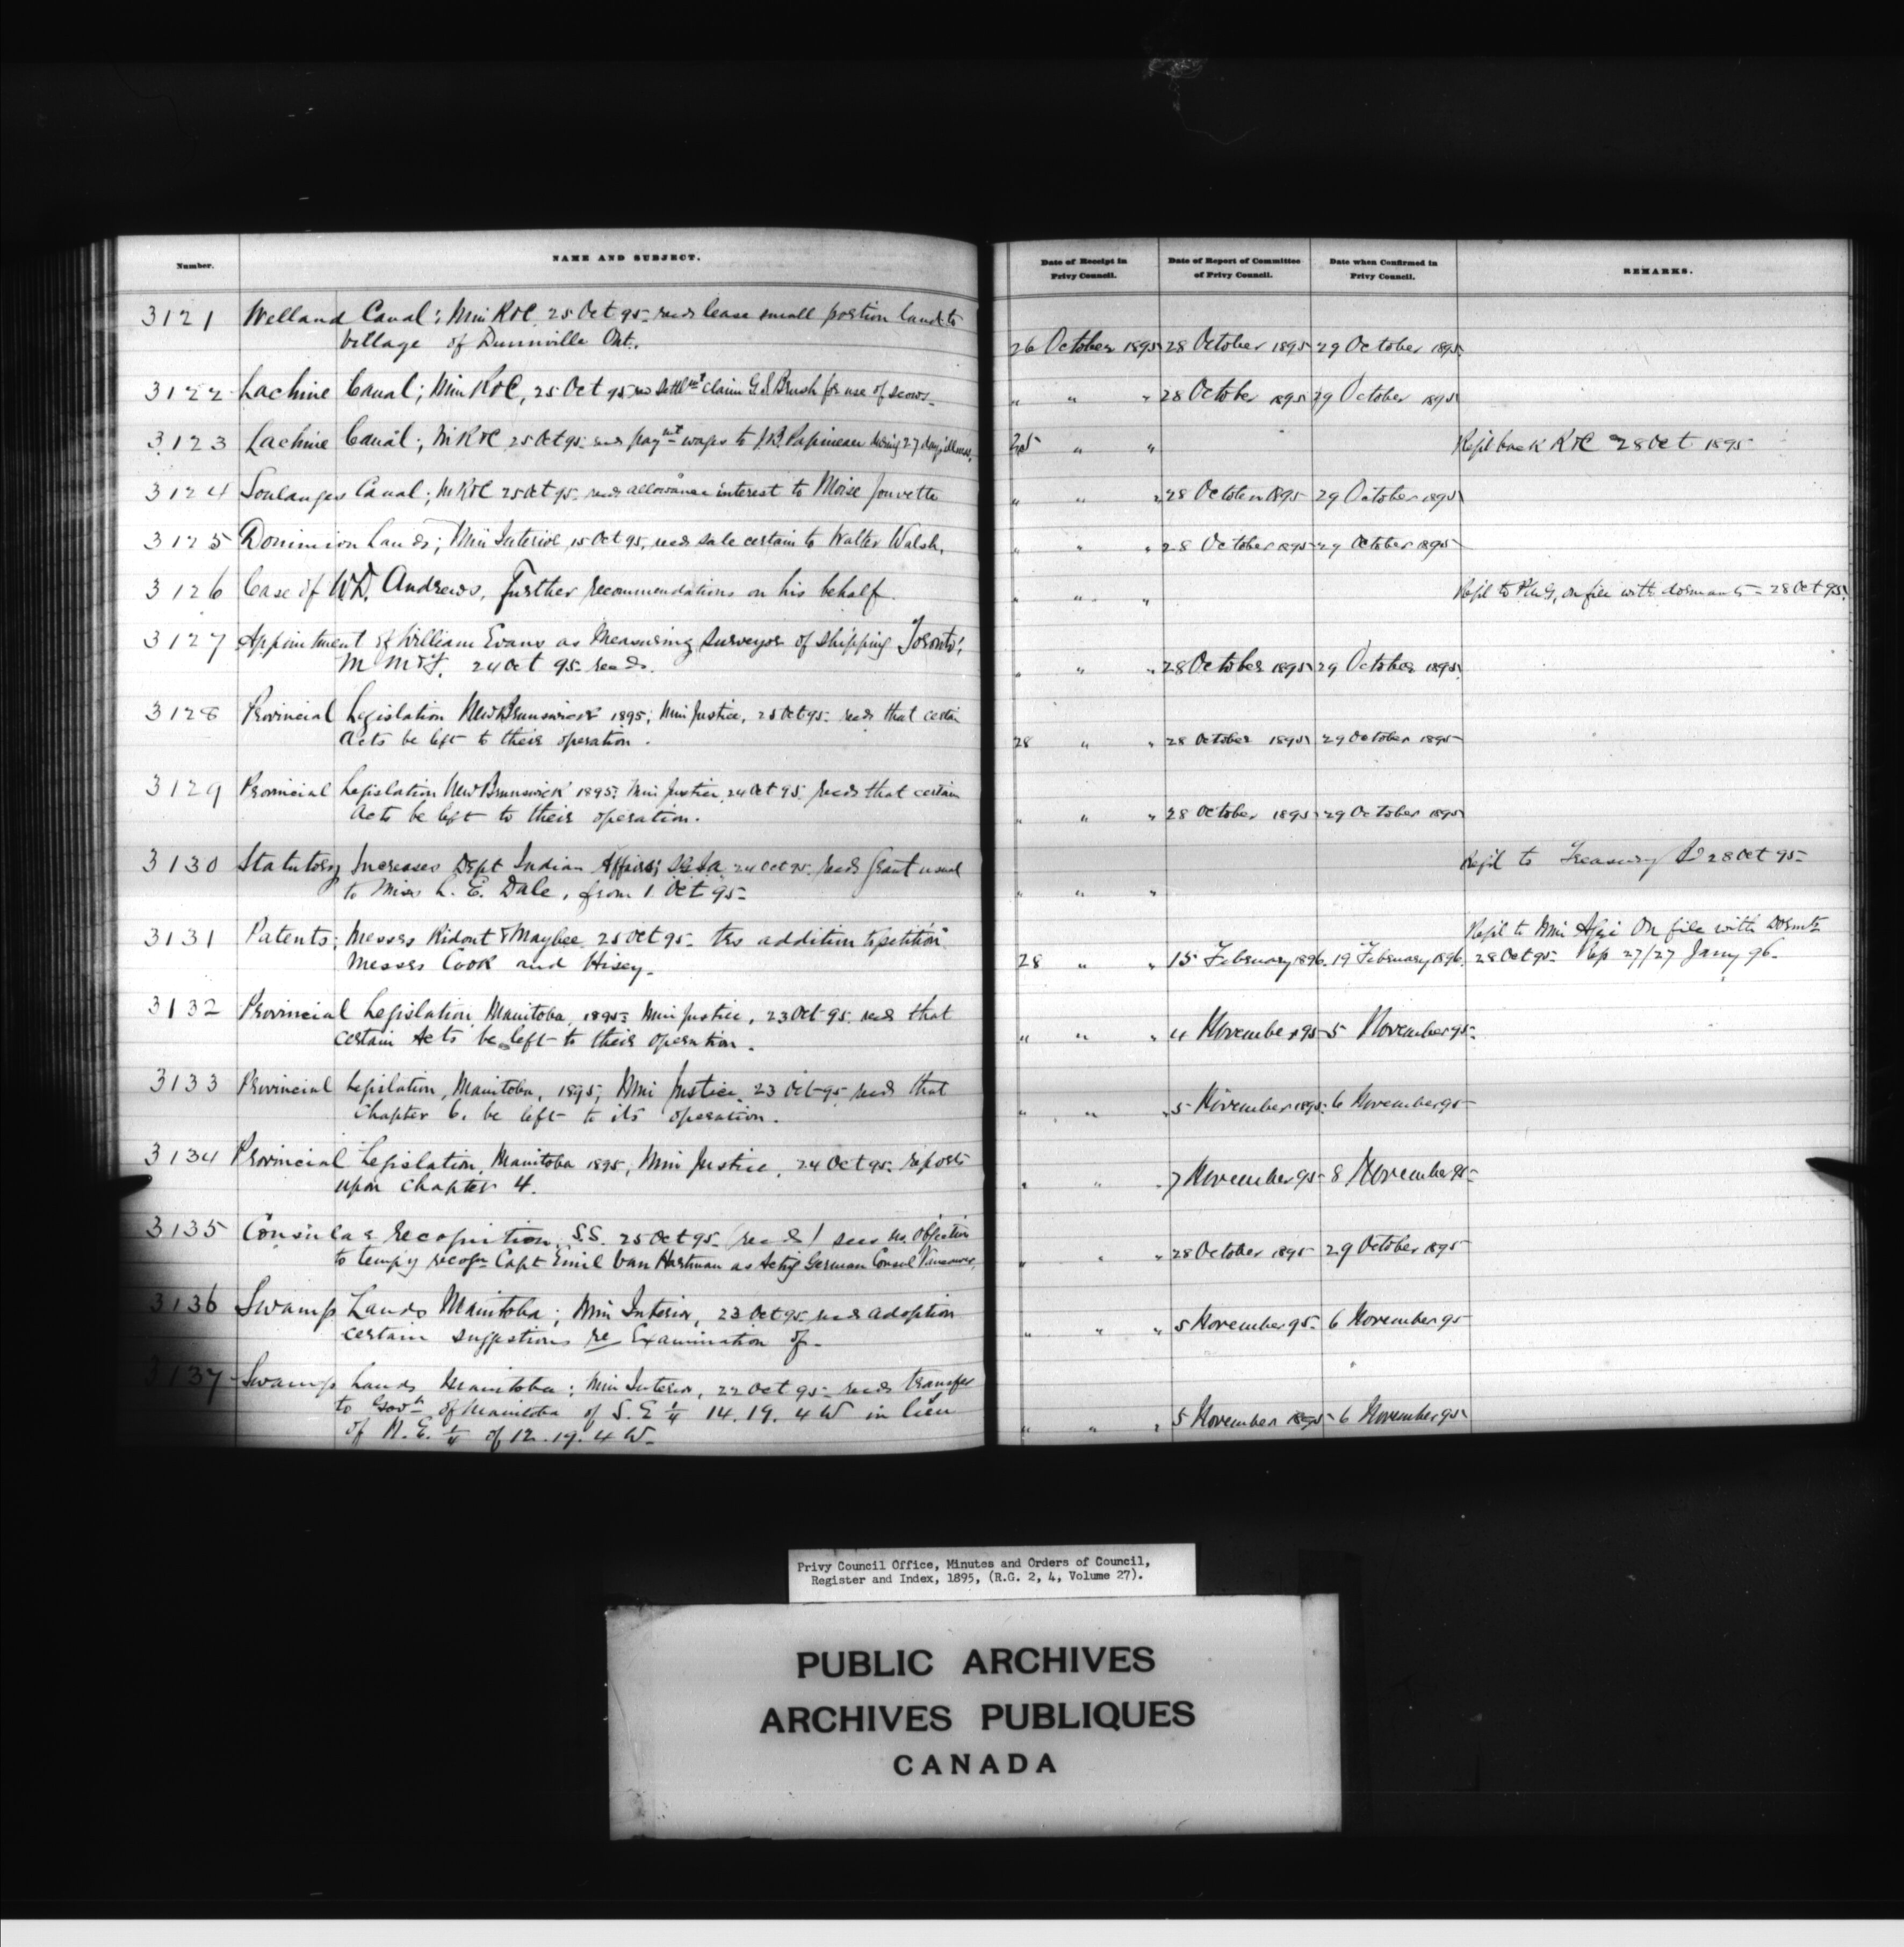 Number.
NAME AND SUBJECT.
Date of Receipt in Privy Council.
Date of Report of Committee of Privy Council.
Date when Confirmed in Privy Council.
REMARKS.
3121 Welland Canal; Min R&C 25 Oct 95 recds lease small portion land to
Village of Dunnville Ont. 26 October 1895 28 October 1895 29 October 1895
3122 Lachine Canal; Min R&C, 25 Oct 95 Settlmt claim G.S. Brush for use of scows " " " 28 October 1895 29 October 1895
3123 Lachine Canal; M R&C 25 Oct 95 recds paymt wages to Papineau during 27 days illness, " " Refd back R&C 28 Oct 1895
3124 Soulanges Canal; M R&C 25 Oct 95 recds allowance interest to Moise Jouvette " " " 28 October 1895 29 October 1895
3125 Dominion Lands; Min Interior 15 Oct 95, recds sale certain to Walter Walsh, " " " 28 October 1895 29 October 1895
3126 Case of W.D. Andrews, Further recommendations on his behalf. " " " Refd to on file with dormants 28 Oct 95.
3127 Appointment of William Evans as Measuring Surveyor of Shipping Toronto;
M M&F. 24 Oct 95 recds. " " " 28 October 1895 29 October 1895
3128 Provincial Legislation New Brunswick 1895; Min Justice, 25 Oct 95 recds that certain
Acts be left to their operation. 28 " " 28 October 1895 29 October 1895
3129 Provincial Legislation New Brunswick 1895; Min Justice, 24 Oct 95 recds that certain
Acts be left to their operation. " " " 28 October 1895 29 October 1895
3130 Statutory Increases Dept Indian Affairs; 24 Oct 95 recds grant usual Refd to Treasury Bd 28 Oct 95
to Miss L. E. Dale, from 1 Oct 95 " " "
3131 Patents; Messrs Ridout & Maybee 25 Oct 95 trs addition to petition Refd to Min Agri On file with Dormts
Messrs Cook and Hisey. 28 " " 15 February 1896. 19 February 1896. 28 Oct 95 Rep 27/27 Jany 96.
3132 Provincial Legislation Manitoba, 1895; Min Justice, 23 Oct 95 recds that
certain Acts be left to their operation. " " " 4 November 95 5 November 95
3133 Provincial Legislation, Manitoba, 1895; Min Justice 23 Oct 95 recds that
Chapter 6. be left to its operation. " " " 5 November 1895 6 November 95
3134 Provincial Legislation, Manitoba 1895; Min Justice, 24 Oct 95 reports
upon Chapter 4. " " " 7 November 95 8 November 95
3135 Consular Recognition, S.S. 25 Oct 95 (recds) sees no objection
to tempy recogn Capt Emil Van Hartman as Actg German Consul Vancouver, " " " 28 October 1895 29 October 1895
3136 Swamp Lands Manitoba; Min Interior, 23 Oct 95 recds adoption
certain suggestions re Examination of. " " " 5 November 95 6 November 95
3137 Swamp Lands Manitoba; Min Interior, 22 Oct 95 recds transfer
to Govt of Manitoba of S.E ¼ 14.19.4 W in lieu
of N.E. ¼ of 12.19.4 W. " " " 5 November 1895 6 November 95
Privy Council Office, Minutes and Orders of Council,
Register and Index, 1895, (R.G. 2, 4, Volume 27).
PUBLIC ARCHIVES
ARCHIVES PUBLIQUES
CANADA